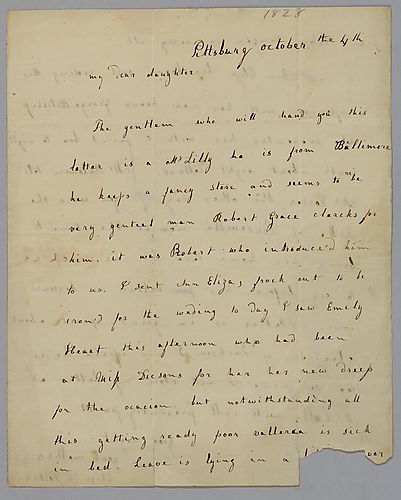 1828
Pittsburg october the 4th
my Dear daughter
The gentlem who will hand you this
letter is a Mr Lilly he is from Baltimore
he keeps a fancy store and seems to be
very genteel man Robert Grace clarcks for
him. it was Robert who introduce'd him
to us. I sent Ann Elizas frock out to be
iron'd for the wading to day I saw Emily
Heart this afternoon who had been
at Miss Dicsons for her new dress
for the ocacion but notwithstanding all
this getting ready poor is sick
in bed. Leave is lying in a